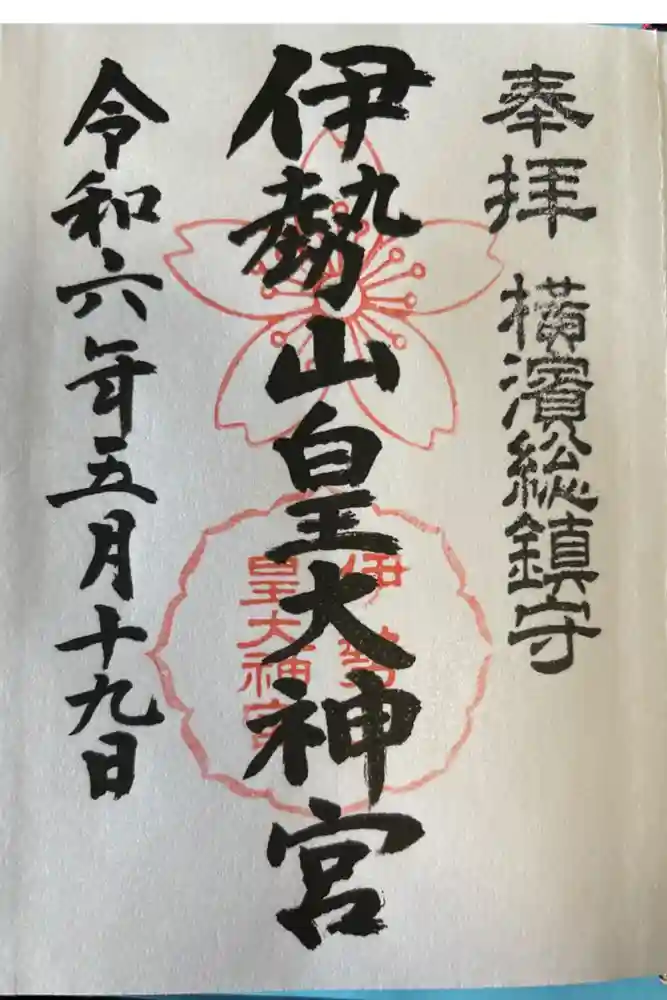 奉拝 横濱総鎮守
伊勢山皇大神宮
伊勢
皇大神宮
令和六年五月十九日